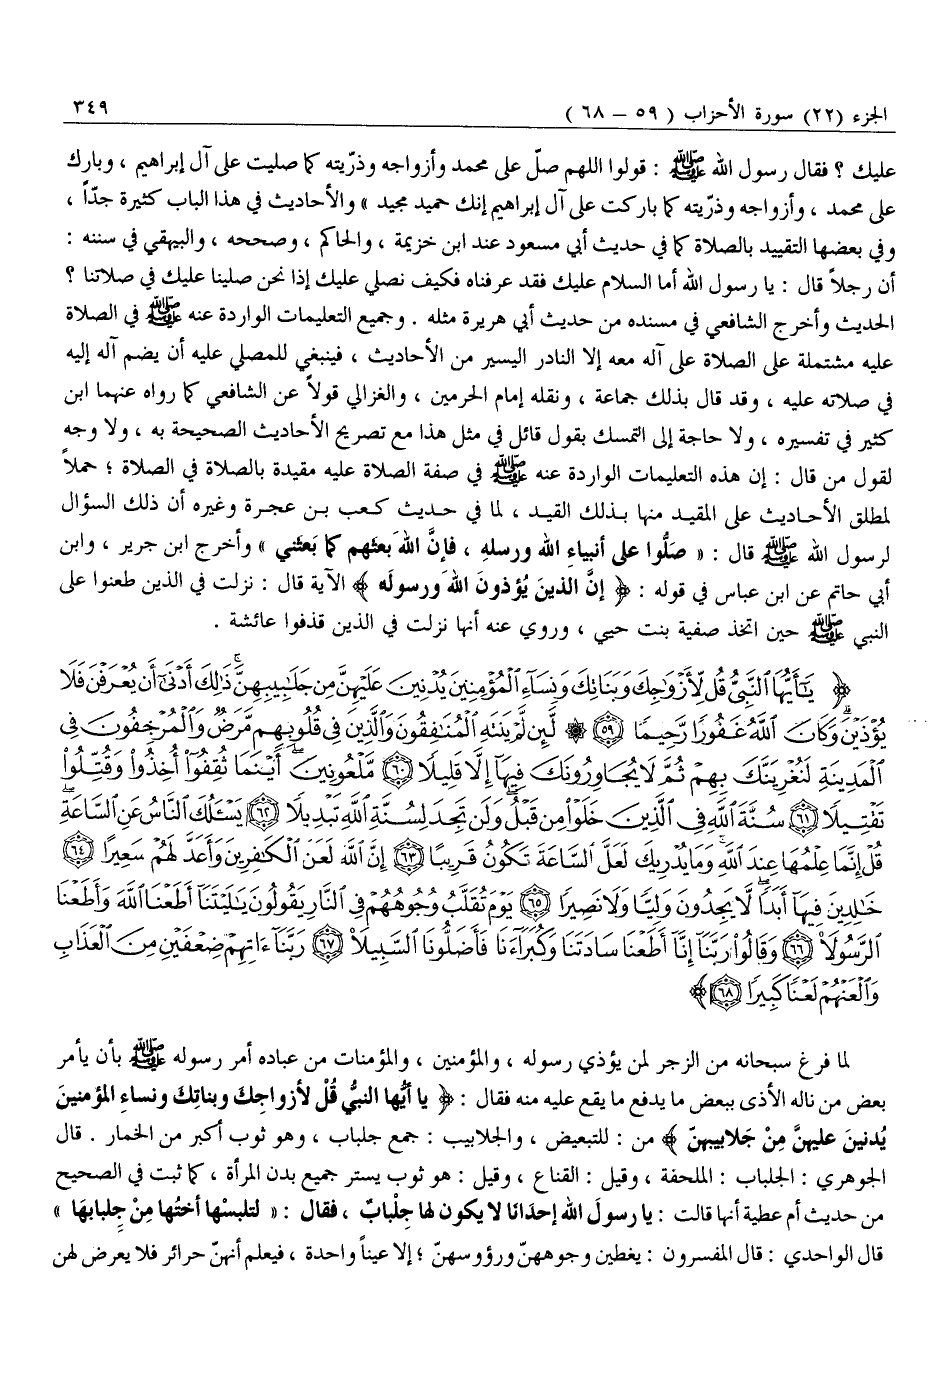 الجزء (٢٢) سورة الأحزاب ( ٥٩ – ٦٨ ) ٣٤٩
عليك ؟ فقال رسول الله ﷺ : قولوا اللهم صلّ على محمد وأزواجه وذرّيته كما صليت على آل إبراهيم ، وبارك
على محمد ، وأزواجه وذرّيته كما باركت على آل إبراهيم إنك حميد مجيد » والأحاديث في هذا الباب كثيرة جدّاً ،
وفي بعضها التقييد بالصلاة كما في حديث أبي مسعود عند ابن خزيمة ، والحاكم ، وصححه ، والبيهقي في سننه :
أن رجلاً قال : يا رسول الله أما السلام عليك فقد عرفناه فكيف نصلي عليك إذا نحن صلينا عليك في صلاتنا ؟
الحديث وأخرج الشافعي في مسنده من حديث أبي هريرة مثله . وجميع التعليمات الواردة عنه ﷺ في الصلاة
عليه مشتملة على الصلاة على آله معه إلا النادر اليسير من الأحاديث ، فينبغي للمصلي عليه أن يضم آله إليه
في صلاته عليه ، وقد قال بذلك جماعة ، ونقله إمام الحرمين ، والغزالي قولاً عن الشافعي كما رواه عنهما ابن
كثير في تفسيره ، ولا حاجة إلى التمسك بقول قائل في مثل هذا مع تصريح الأحاديث الصحيحة به ، ولا وجه
لقول من قال : إن هذه التعليمات الواردة عنه ﷺ في صفة الصلاة عليه مقيدة بالصلاة في الصلاة ؛ حملاً
لمطلق الأحاديث على المقيد منها بذلك القيد ، لما في حديث كعب بن عجرة وغيره أن ذلك السؤال
لرسول الله ﷺ قال : « صَلُّوا على أنبياءِ الله ورسلهِ ، فإنَّ اللهَ بعثهم كما بَعثني » وأخرج ابن جرير ، وابن
أبي حاتم عن ابن عباس في قوله : ﴿ إنَّ الذينَ يُؤذونَ اللهَ ورسولَه ﴾ الآية قال : نزلت في الذين طعنوا على
النبي ﷺ حين اتخذ صفية بنت حيي ، وروي عنه أنها نزلت في الذين قذفوا عائشة .
﴿ يَٰٓأَيُّهَا ٱلنَّبِيُّ قُل لِّأَزۡوَٰجِكَ وَبَنَاتِكَ وَنِسَآءِ ٱلۡمُؤۡمِنِينَ يُدۡنِينَ عَلَيۡهِنَّ مِن جَلَٰبِيبِهِنَّۚ ذَٰلِكَ أَدۡنَىٰٓ أَن يُعۡرَفۡنَ فَلَا
يُؤۡذَيۡنَۗ وَكَانَ ٱللَّهُ غَفُورٗا رَّحِيمٗا ٥٩ ۞ لَّئِن لَّمۡ يَنتَهِ ٱلۡمُنَٰفِقُونَ وَٱلَّذِينَ فِي قُلُوبِهِم مَّرَضٞ وَٱلۡمُرۡجِفُونَ فِي
ٱلۡمَدِينَةِ لَنُغۡرِيَنَّكَ بِهِمۡ ثُمَّ لَا يُجَاوِرُونَكَ فِيهَآ إِلَّا قَلِيلٗا ٦٠ مَّلۡعُونِينَۖ أَيۡنَمَا ثُقِفُوٓاْ أُخِذُواْ وَقُتِّلُواْ
تَقۡتِيلٗا ٦١ سُنَّةَ ٱللَّهِ فِي ٱلَّذِينَ خَلَوۡاْ مِن قَبۡلُۖ وَلَن تَجِدَ لِسُنَّةِ ٱللَّهِ تَبۡدِيلٗا ٦٢ يَسۡـَٔلُكَ ٱلنَّاسُ عَنِ ٱلسَّاعَةِۖ
قُلۡ إِنَّمَا عِلۡمُهَا عِندَ ٱللَّهِۚ وَمَا يُدۡرِيكَ لَعَلَّ ٱلسَّاعَةَ تَكُونُ قَرِيبًا ٦٣ إِنَّ ٱللَّهَ لَعَنَ ٱلۡكَٰفِرِينَ وَأَعَدَّ لَهُمۡ سَعِيرًا ٦٤
خَٰلِدِينَ فِيهَآ أَبَدٗاۖ لَّا يَجِدُونَ وَلِيّٗا وَلَا نَصِيرٗا ٦٥ يَوۡمَ تُقَلَّبُ وُجُوهُهُمۡ فِي ٱلنَّارِ يَقُولُونَ يَٰلَيۡتَنَآ أَطَعۡنَا ٱللَّهَ وَأَطَعۡنَا
ٱلرَّسُولَا۠ ٦٦ وَقَالُواْ رَبَّنَآ إِنَّآ أَطَعۡنَا سَادَتَنَا وَكُبَرَآءَنَا فَأَضَلُّونَا ٱلسَّبِيلَا۠ ٦٧ رَبَّنَآ ءَاتِهِمۡ ضِعۡفَيۡنِ مِنَ ٱلۡعَذَابِ
وَٱلۡعَنۡهُمۡ لَعۡنٗا كَبِيرٗا ٦٨ ﴾
لما فرغ سبحانه من الزجر لمن يؤذي رسوله ، والمؤمنين ، والمؤمنات من عباده أمر رسوله ﷺ بأن يأمر
بعض من ناله الأذى ببعض ما يدفع ما يقع عليه منه فقال : ﴿ يا أيُّها النبيُّ قُلْ لأزواجِكَ وبناتِكَ ونساءِ المؤمنينَ
يُدنينَ عليهنَّ مِنْ جَلابيبهنّ ﴾ من : للتبعيض ، والجلابيب : جمع جلباب ، وهو ثوب أكبر من الخمار . قال
الجوهري : الجلباب : الملحفة ، وقيل : القناع ، وقيل : هو ثوب يستر جميع بدن المرأة ، كما ثبت في الصحيح
من حديث أم عطية أنها قالت : يا رسولَ الله إحدَانَا لا يكون لها جِلْبابٌ ، فقال : « لتلبسْها أختُها مِنْ جِلبابهَا »
قال الواحدي : قال المفسرون : يغطين وجوههنّ ورؤوسهنّ ؛ إلا عيناً واحدة ، فيعلم أنهنّ حرائر فلا يعرض لهن